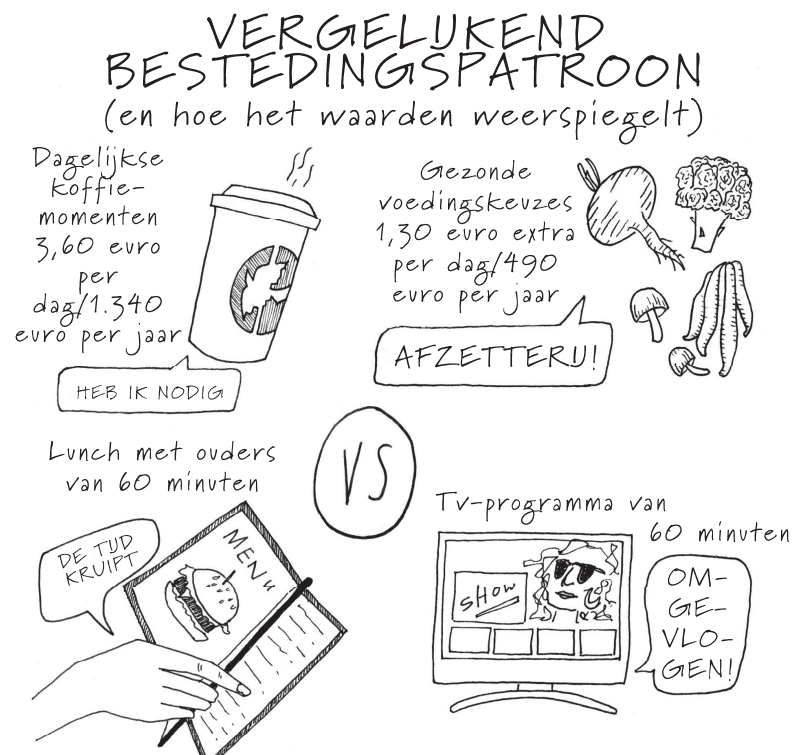 VERGELIJKEND
BESTEDINGSPATROON
(en hoe het waarden weerspiegelt)
Dagelijkse
koffie-
momenten
3,60 euro
per
dag/1.340
euro per jaar
HEB IK NODIG
Gezonde
voedingskeuzes
1,30 euro extra
per dag/490
euro per jaar
AFZETTERIJ!
VS
Lunch met ouders
van 60 minuten
DE TIJD
KRUIPT
MENU
Tv-programma van
60 minuten
SHOW
OM-
GE-
VLO-
GEN!